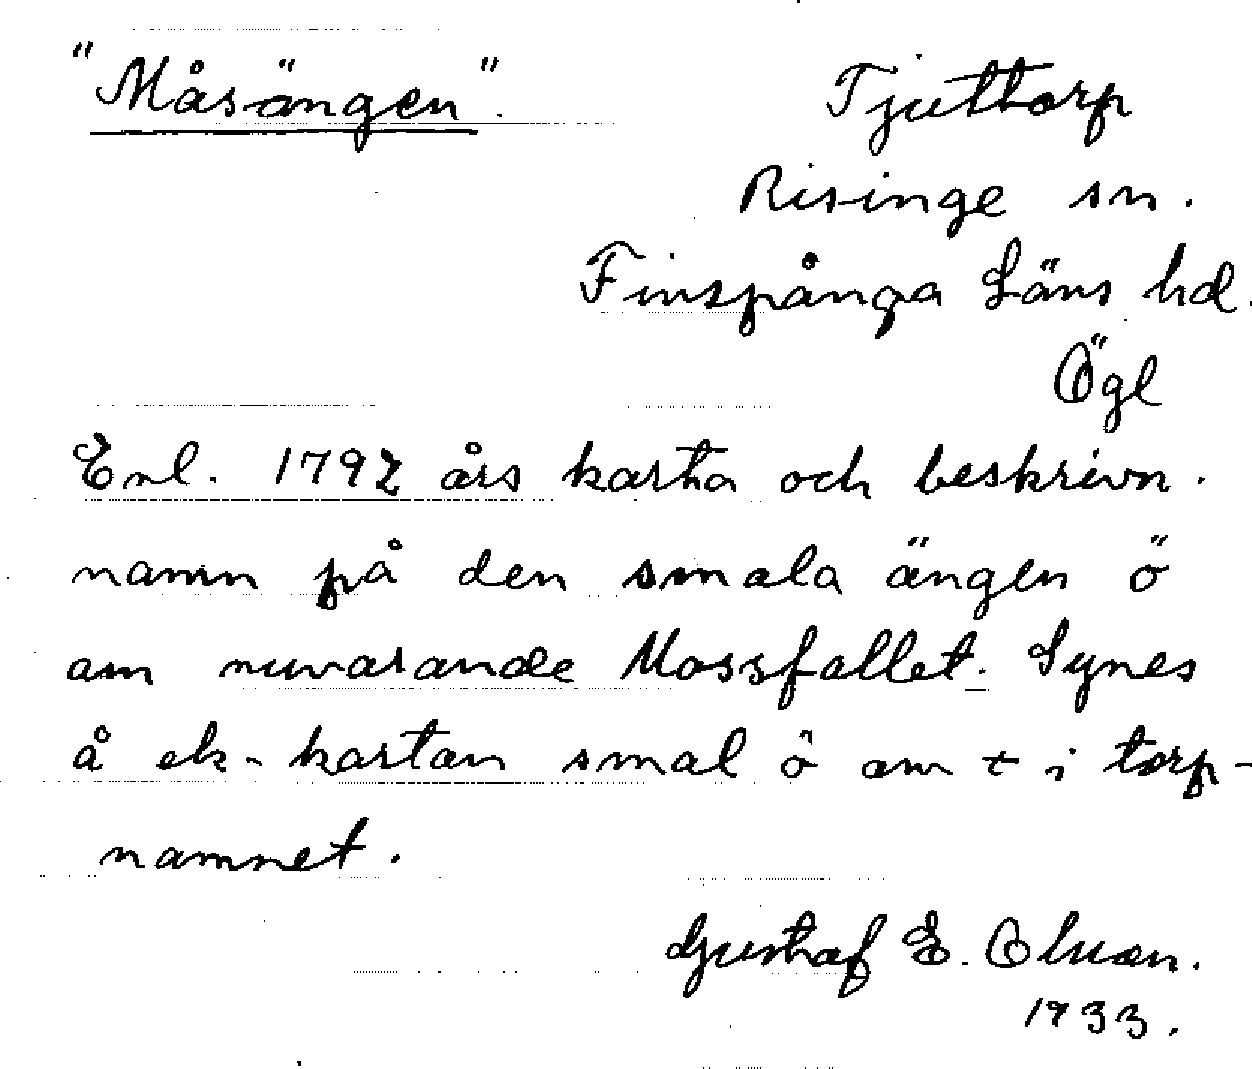 "Måsängen".
Tjuttorp
Risinge sn.
Finspånga Läns hd.
Ögl
Enl. 1792 års karta och beskrivn.
namn på den smala ängen ö
om nuvarande Mossfallet. Synes
å ek-kartan smal ö om t i torp-
namnet.
Gustaf E. Olsson.
1933.